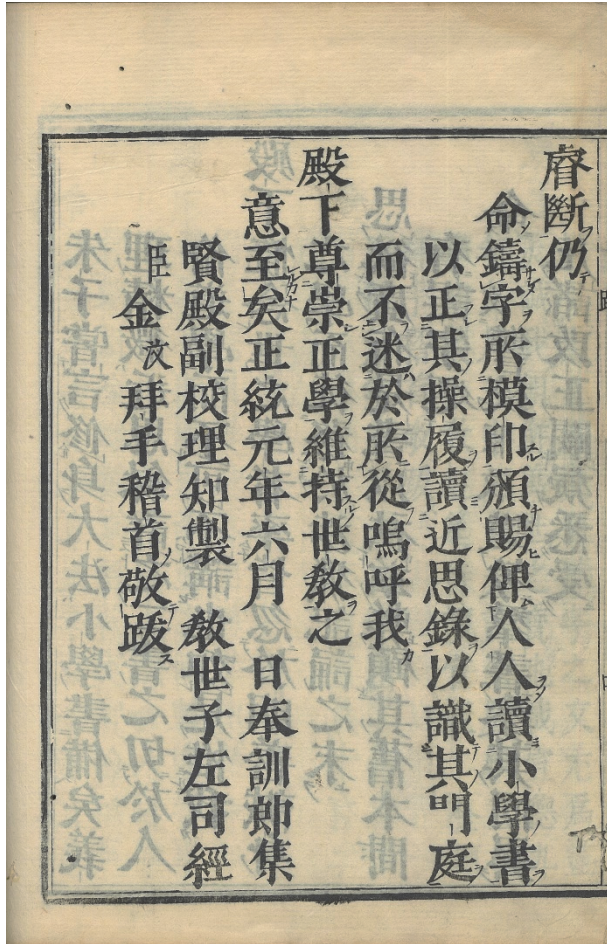 睿斷仍
命鑄字所模印頒賜俾人人讀小學書
以正其操履讀近思錄以識其門庭
而不迷於所從嗚呼我
殿下尊崇正學維持世敎之
意至矣正統元年六月　日奉訓郎集
賢殿副校理知製　敎世子左司經
臣金汶拜手稽首敬跋